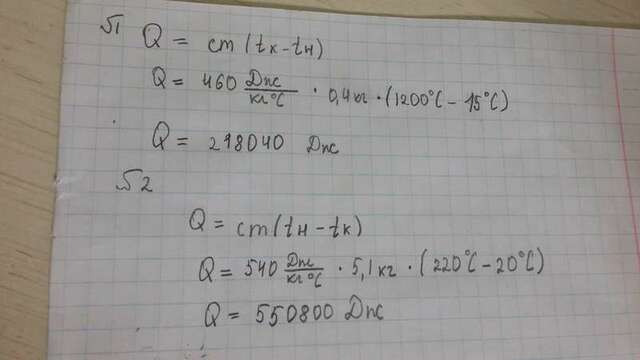 №1
Q = cm(tк-tн)
Q = 460 Дж/кг°С · 0,4кг · (1200°С - 15°С)
Q = 218040 Дж
№2
Q = cm(tн-tк)
Q = 540 Дж/кг°С · 5,1кг · (220°С - 20°С)
Q = 550800 Дж